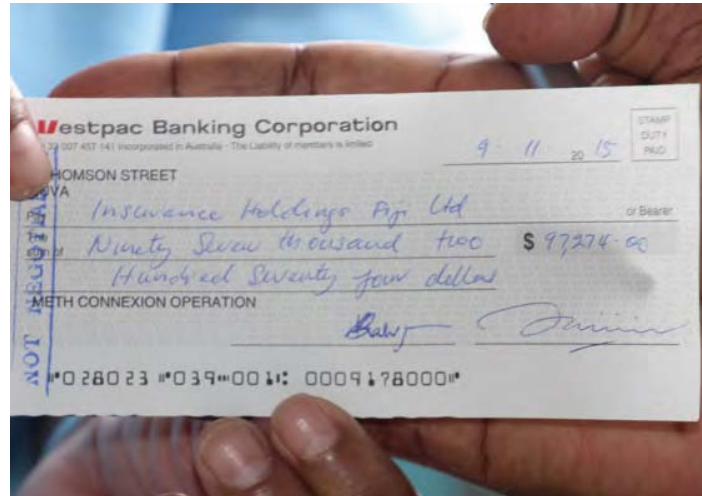 Westpac Banking Corporation
007 457 141 Incorporated in Australia - The Liability of members is limited
STAMP
DUTY
PAID
9 11 20 15
HOMSON STREET
UVA
Insurance Holdings Fiji Ltd or Bearer
Ninety Seven thousand two $ 97,274.00
Hundred Seventy four dollars
METH CONNEXION OPERATION
NOT NEGOTIABLE
028023 039 001 0009178000